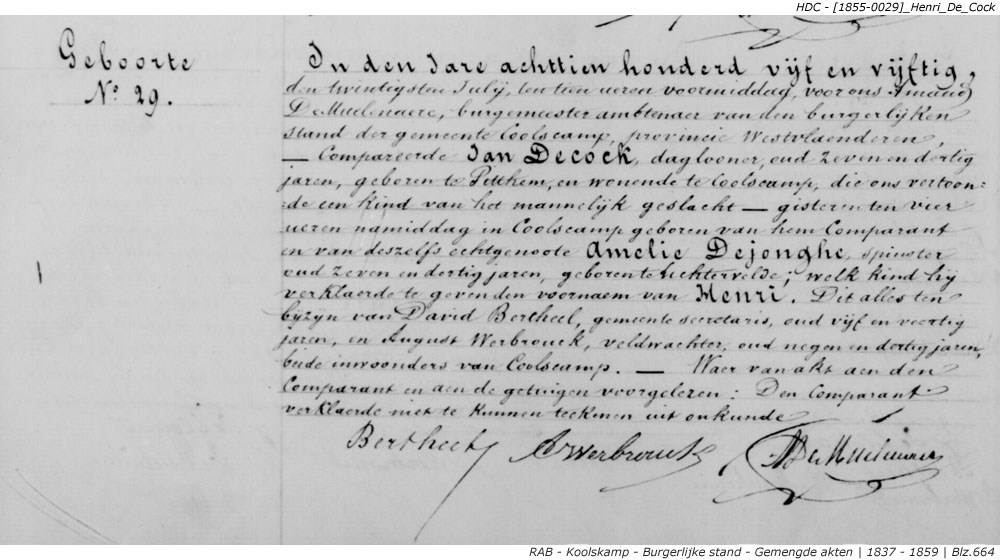 HDC - [1855-0029]_Henri_De_Cock
Geboorte
N.º 29.
In den Jare achttien honderd vijf en vijftig,
den twintigsten Julij, ten tien ueren voormiddag, voor ons Amand
De Muelenaere, burgemeester ambtenaer van den burgerlijken
stand der gemeente Coolscamp, provincie Westvlaenderen,
— Compareerde Jan Decock, daglooner, oud zeven en dertig
jaren, geboren te Pitthem, en wonende te Coolscamp, die ons vertoon=
=de een kind van het mannelijk geslacht — gisteren ten vier
ueren namiddag in Coolscamp geboren van hem Comparant
en van deszelfs echtgenoote Amelie Dejonghe, spinster
oud zeven en dertig jaren, geboren te Lichtervelde; welk kind hij
verklaerde te geven den voornaem van Henri. Dit alles ten
bijzijn van David Bertheel, gemeente secretaris, oud vijf en veertig
jaren, en August Werbrouck, veldwachter, oud negen en dertig jaren,
beide inwoonders van Coolscamp. — Waer van akt aen den
Comparant en aen de getuigen voorgelezen: Den Comparant
verklaerde niet te kunnen teekenen uit onkunde
Bertheel AWerbrouck ADeMuelenaere
RAB - Koolskamp - Burgerlijke stand - Gemengde akten | 1837 - 1859 | Blz.664